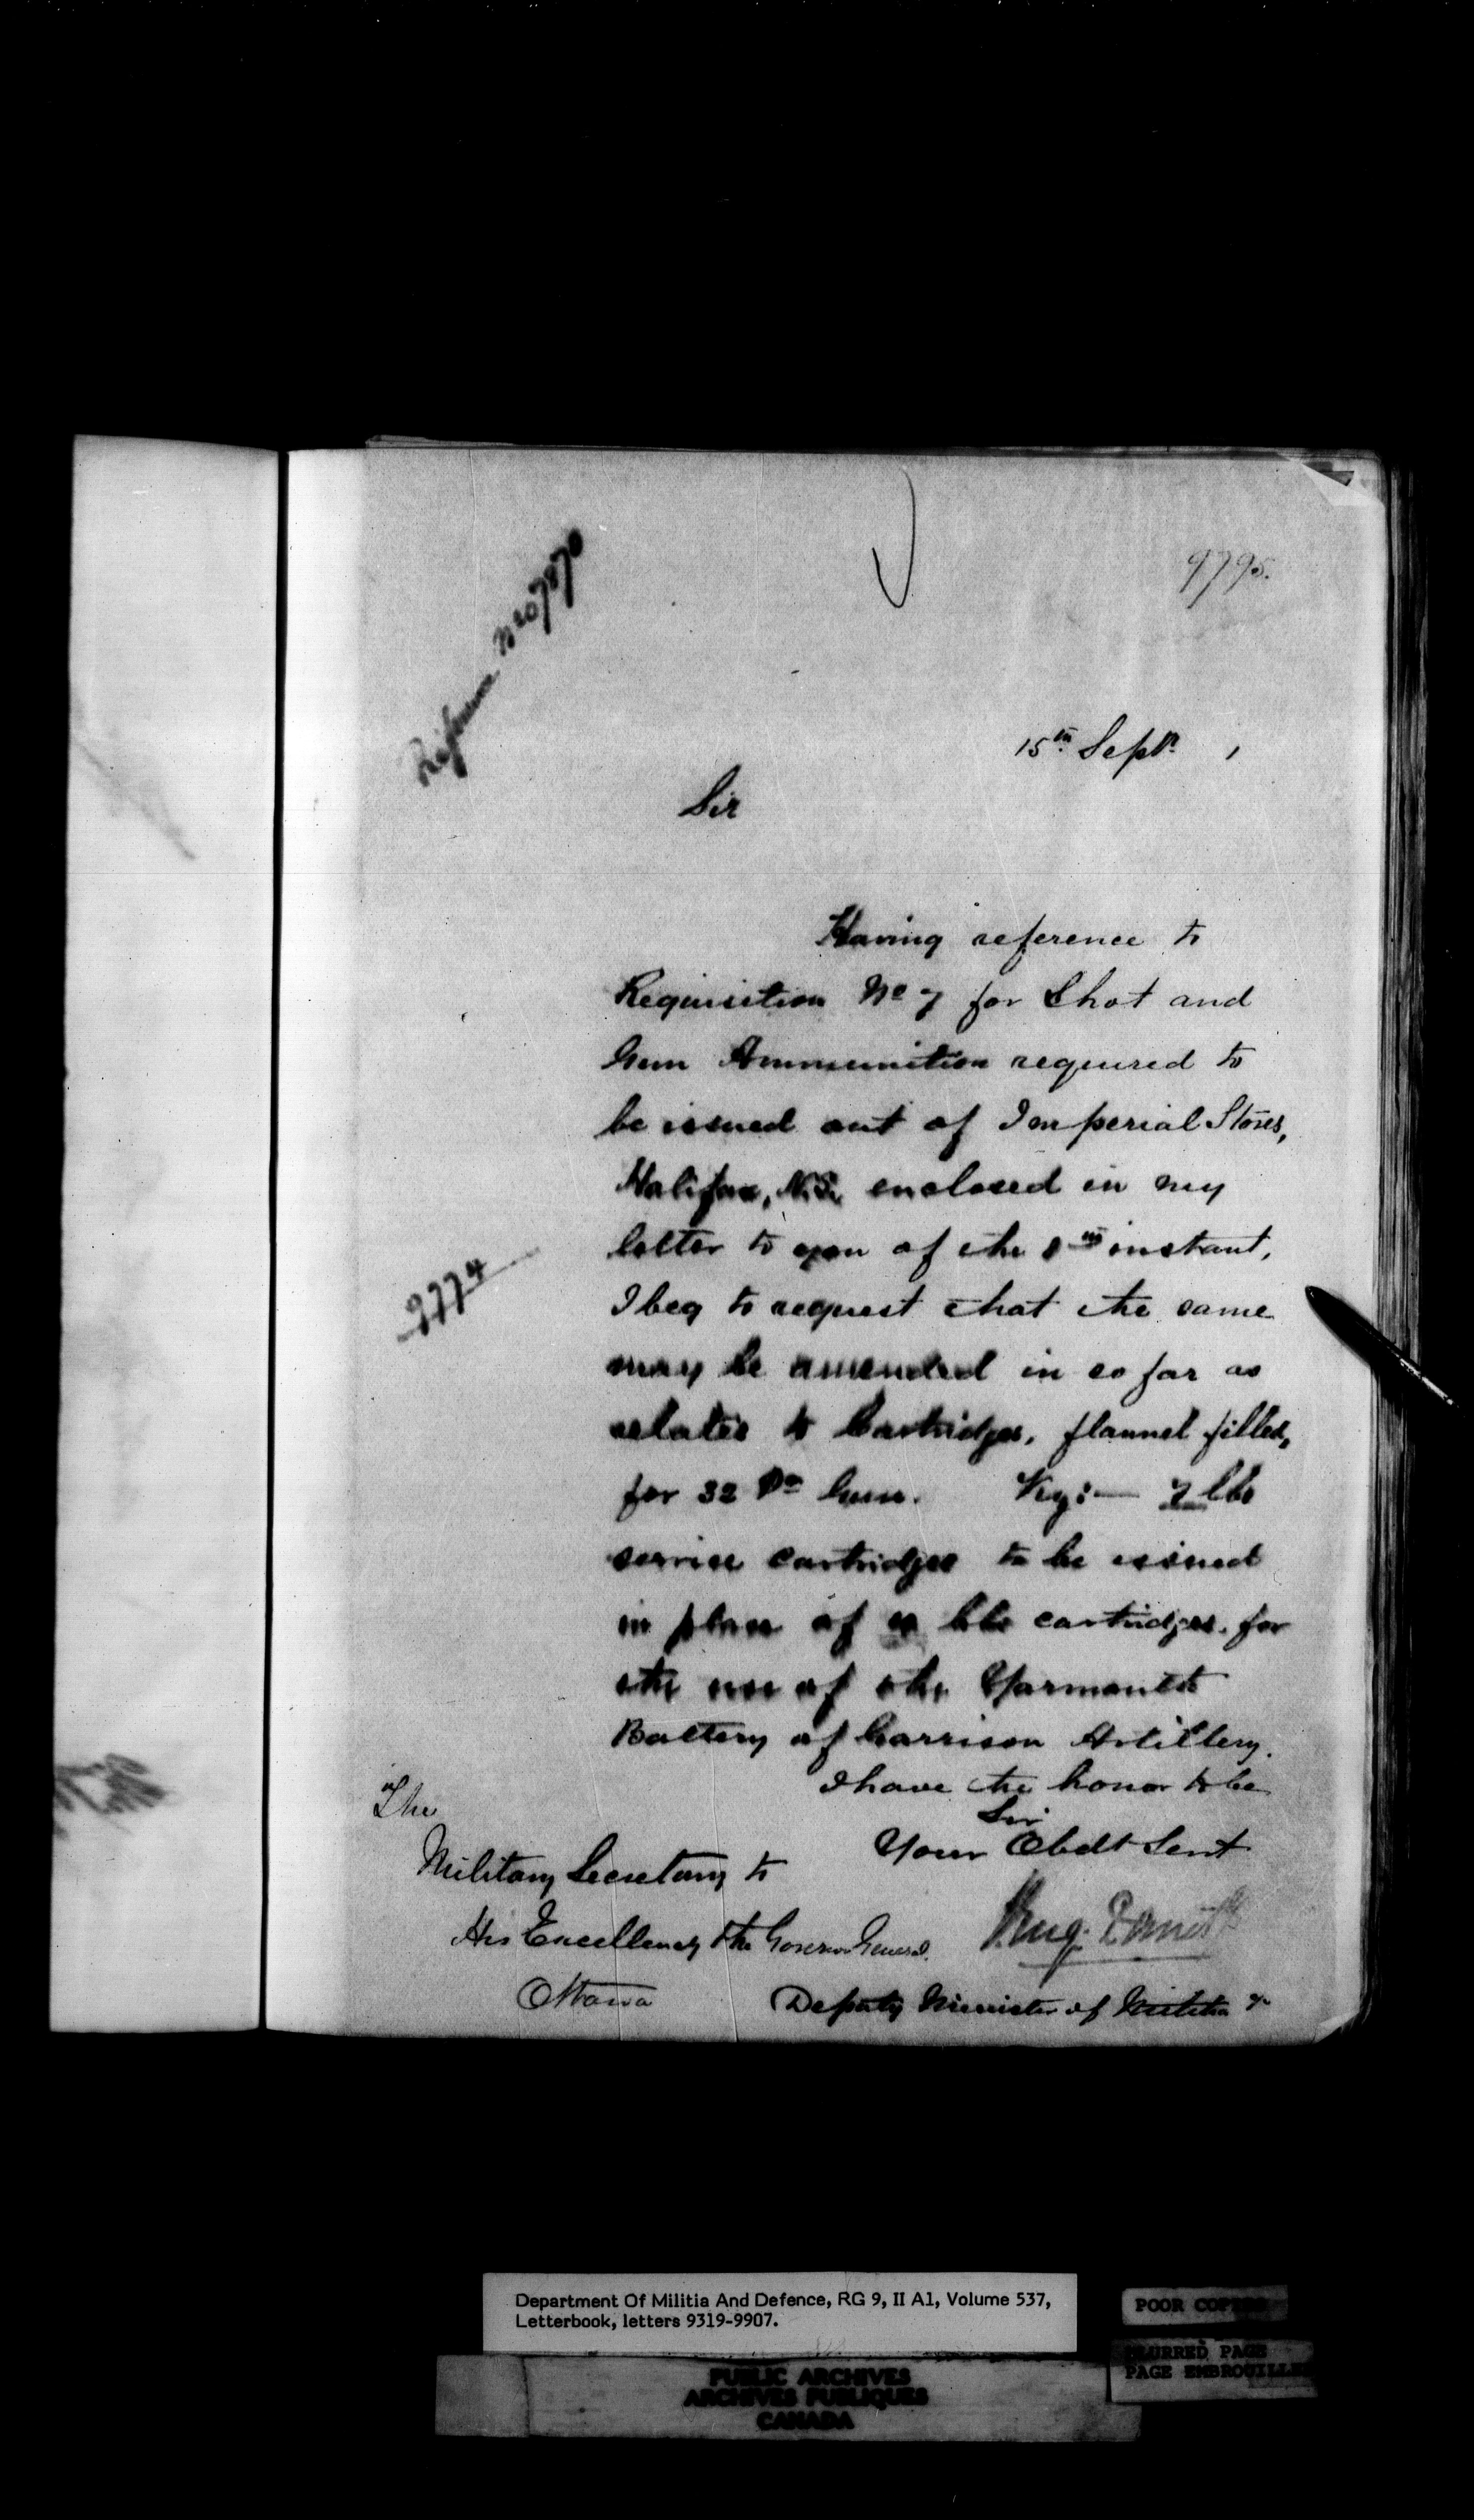 9795.
Reference No 7870
15th Septr. ,
Sir
Having reference to
Requisition No 7 for Shot and
Gun Ammunition required to
be issued out of Imperial Stores,
Halifax, N.S. enclosed in my
letter to you of the 8th instant,
9774
I beg to request that the same
may be amended in so far as
relates to Cartridges, flannel filled,
for 32 Pr Guns. Viz:— 7 lbs
service cartridges to be issued
in place of lbs cartridges. for
the use of the Yarmouth
Battery of Garrison Artillery.
I have the honor to be
Sir
Your Obdt Servt
The
Military Secretary to
His Excellency the Governor General.
Ottawa
Deputy Minister of Militia &
Department Of Militia And Defence, RG 9, II A1, Volume 537,
Letterbook, letters 9319-9907.
POOR COPIES
BLURRED PAGE
PAGE EMBROUILLEE
PUBLIC ARCHIVES
ARCHIVES PUBLIQUES
CANADA